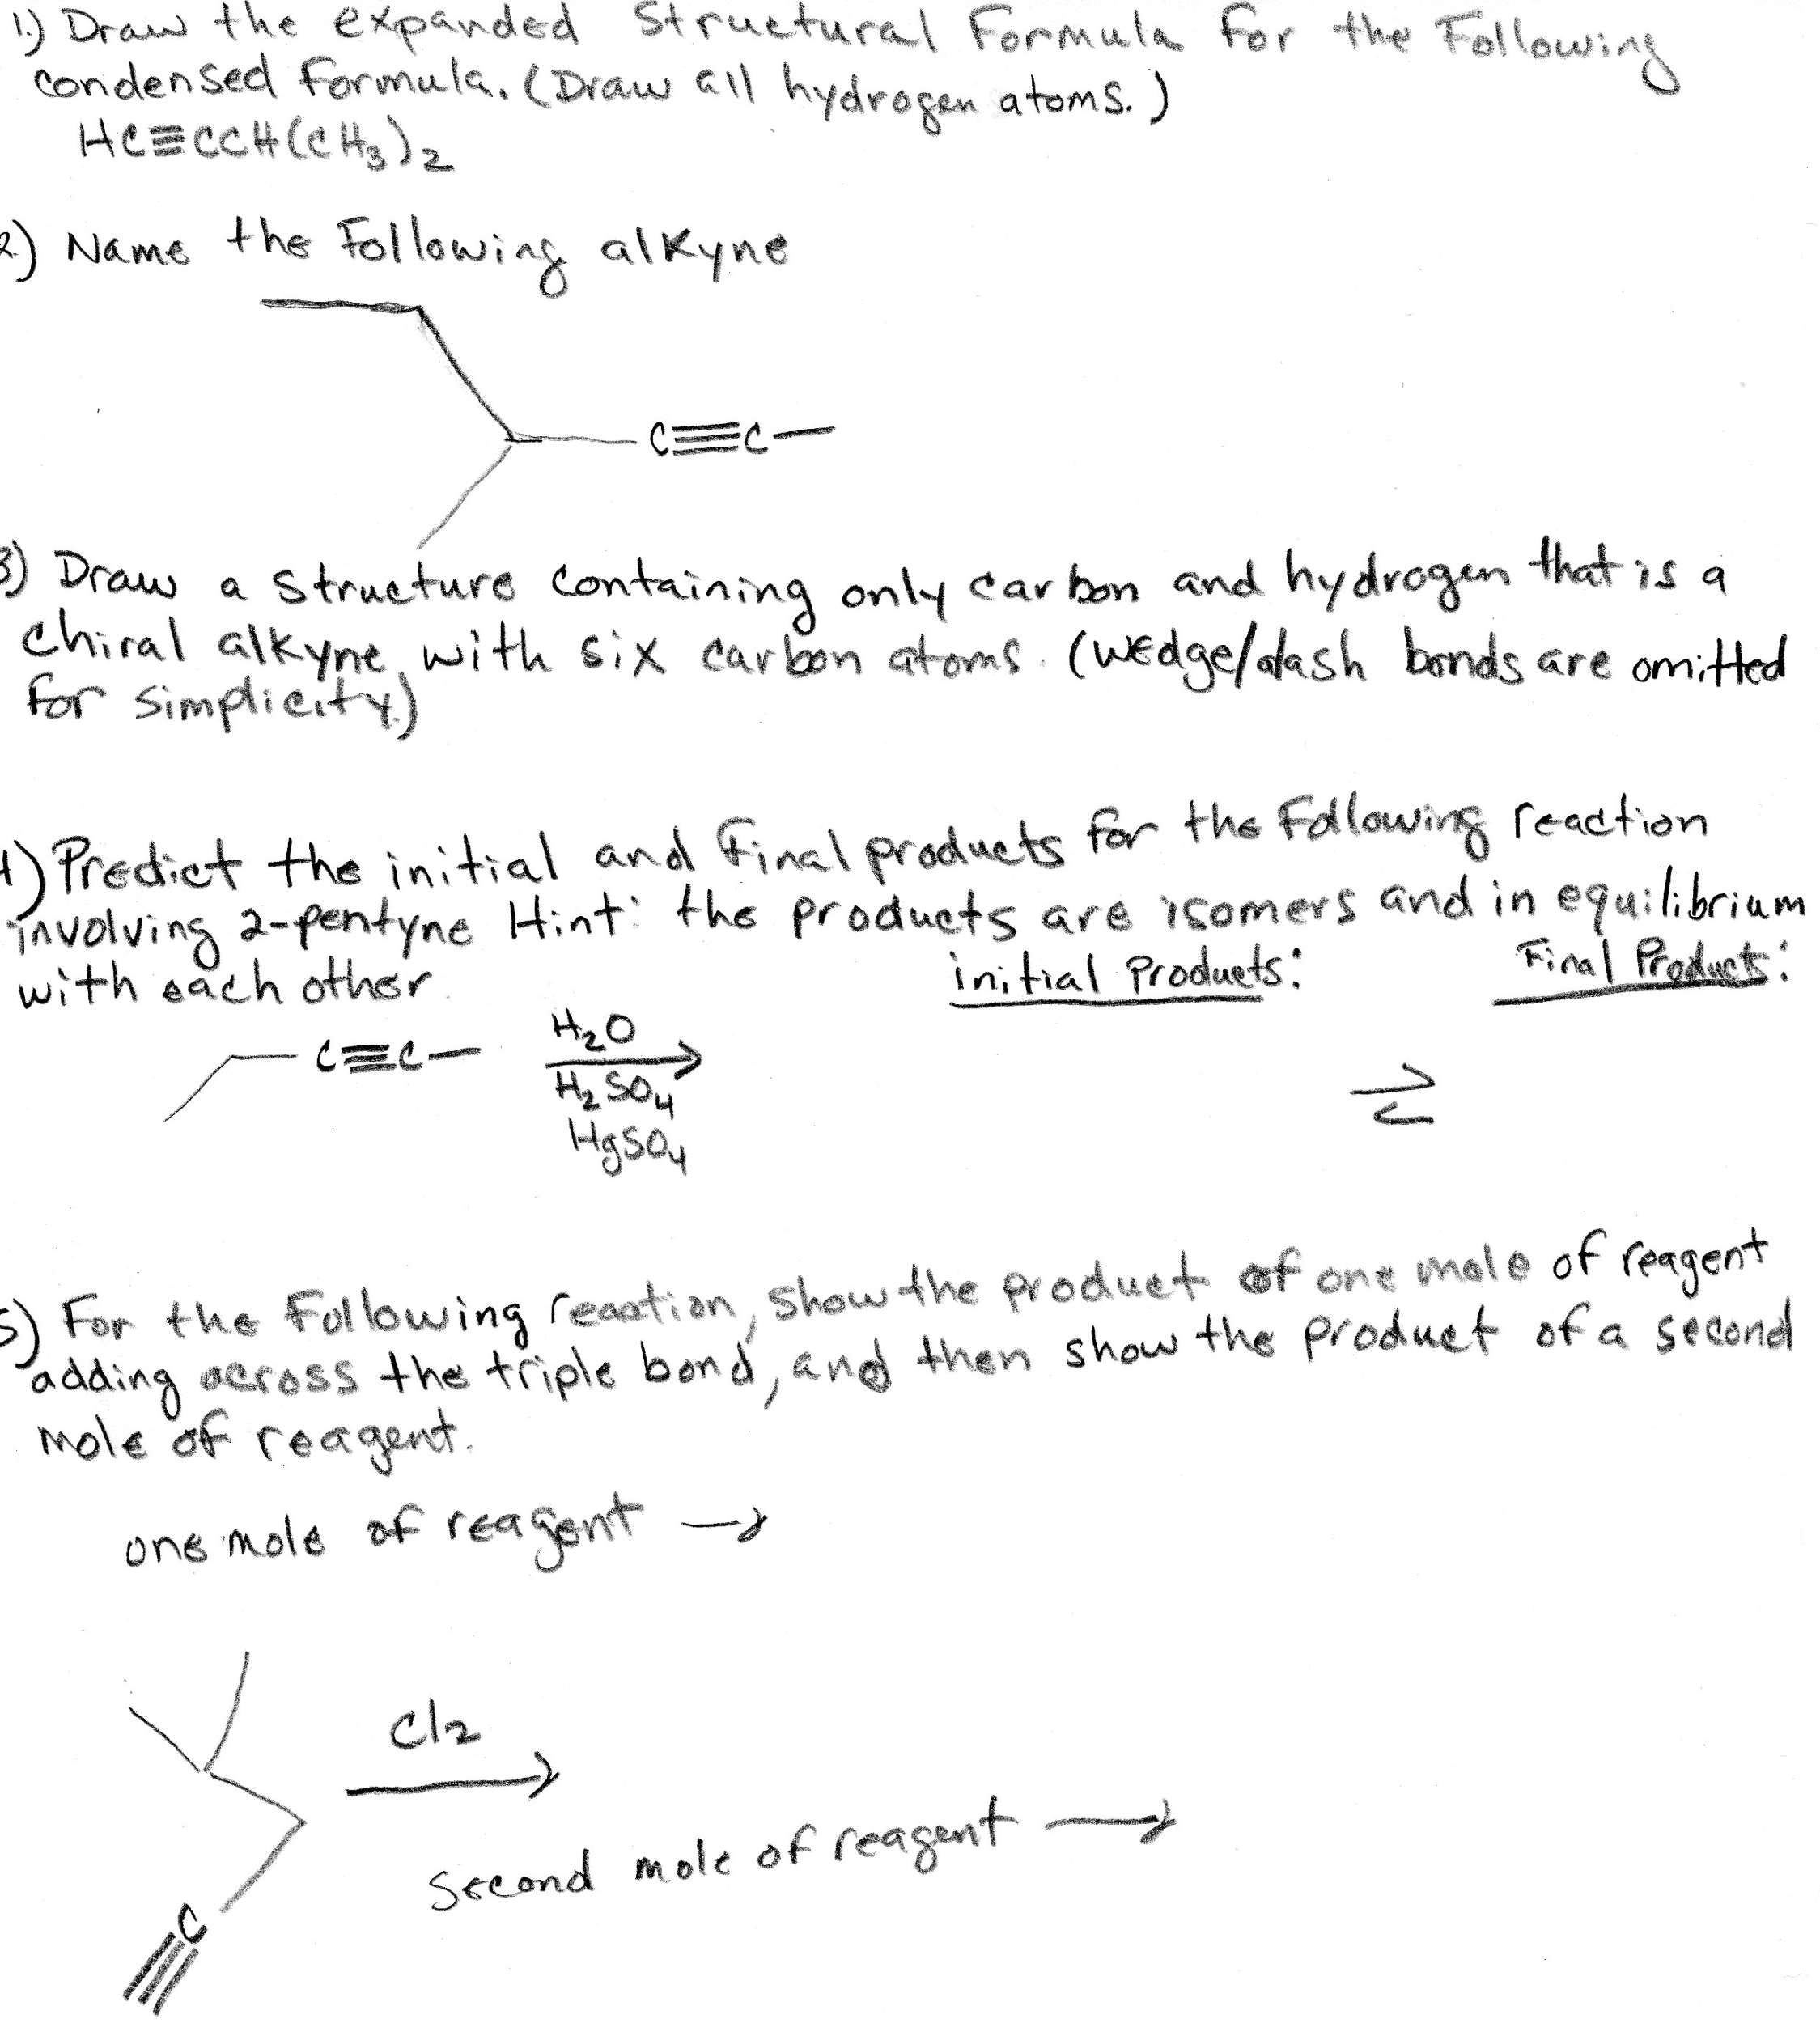 1.) Draw the expanded Structural Formula for the Following
condensed formula. (Draw all hydrogen atoms.)
HC≡CCH(CH₃)₂
2.) Name the Following alkyne
C≡C
3) Draw a structure containing only carbon and hydrogen that is a
chiral alkyne, with six carbon atoms. (wedge/dash bonds are omitted
for simplicity.)
4) Predict the initial and final products for the following reaction
involving 2-pentyne Hint: the products are isomers and in equilibrium
with each other.
initial Products:
Final Products:
C≡C
H₂O
H₂SO₄
HgSO₄
⇌
5) For the following reaction, show the product of one mole of reagent
adding across the triple bond, and then show the product of a second
mole of reagent.
one mole of reagent →
Cl2
second mole of reagent →
C